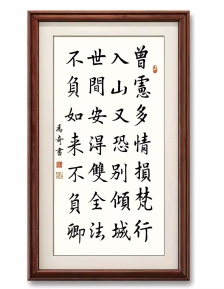 曾憲多情損梵行
入山又恐別傾城
世間安得雙全法
不負如來不負卿
奇書